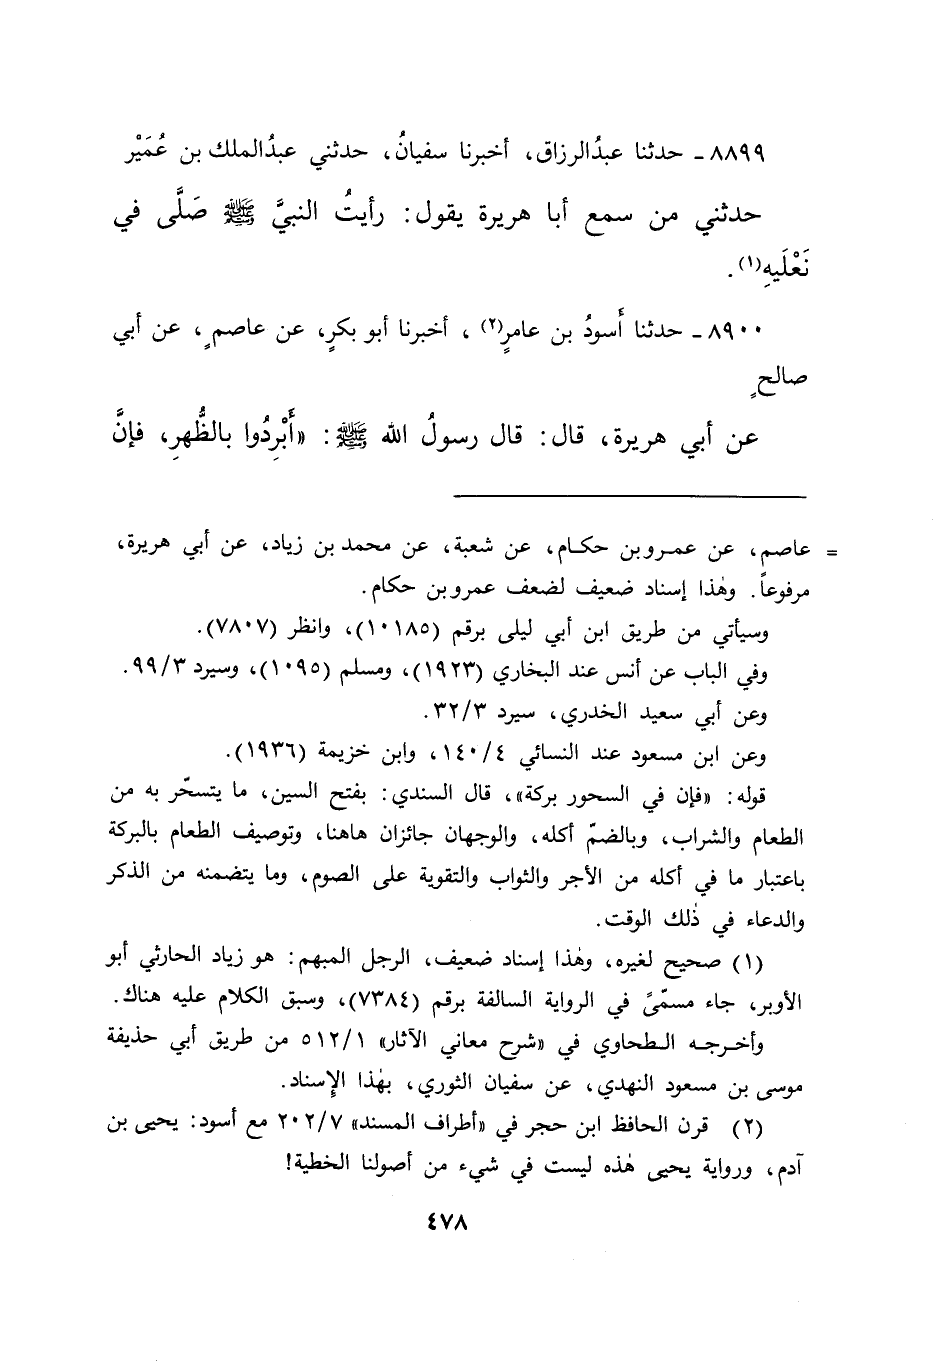 ٨٨٩٩ ـ حدثنا عبدُالرزاق، أخبرنا سفيانُ، حدثني عبدُالملك بن عُمَيْر
حدثني من سمع أبا هريرة يقول: رأيتُ النبيَّ ﷺ صَلَّى في
نَعْلَيهِ(١).
٨٩٠٠ ـ حدثنا أَسودُ بن عامرٍ(٢)، أخبرنا أبو بكرٍ، عن عاصمٍ، عن أبي
صالحٍ
عن أبي هريرة، قال: قال رسولُ الله ﷺ: «أَبْرِدُوا بالظُّهرِ، فإنَّ
= عاصم، عن عمرو بن حكام، عن شعبة، عن محمد بن زياد، عن أبي هريرة،
مرفوعاً. وهٰذا إسناد ضعيف لضعف عمرو بن حكام.
وسيأتي من طريق ابن أبي ليلى برقم (١٠١٨٥)، وانظر (٧٨٠٧).
وفي الباب عن أنس عند البخاري (١٩٢٣)، ومسلم (١٠٩٥)، وسيرد ٩٩/٣.
وعن أبي سعيد الخدري، سيرد ٣٢/٣.
وعن ابن مسعود عند النسائي ١٤٠/٤، وابن خزيمة (١٩٣٦).
قوله: «فإن في السحور بركة»، قال السندي: بفتح السين، ما يتسحّر به من
الطعام والشراب، وبالضمّ أكله، والوجهان جائزان هاهنا، وتوصيف الطعام بالبركة
باعتبار ما في أكله من الأجر والثواب والتقوية على الصوم، وما يتضمنه من الذكر
والدعاء في ذٰلك الوقت.
(١) صحيح لغيره، وهٰذا إسناد ضعيف، الرجل المبهم: هو زياد الحارثي أبو
الأوبر، جاء مسمّىً في الرواية السالفة برقم (٧٣٨٤)، وسبق الكلام عليه هناك.
وأخرجه الطحاوي في «شرح معاني الآثار» ٥١٢/١ من طريق أبي حذيفة
موسى بن مسعود النهدي، عن سفيان الثوري، بهٰذا الإسناد.
(٢) قرن الحافظ ابن حجر في «أطراف المسند» ٢٠٢/٧ مع أسود: يحيى بن
آدم، ورواية يحيى هٰذه ليست في شيء من أصولنا الخطية!
٤٧٨